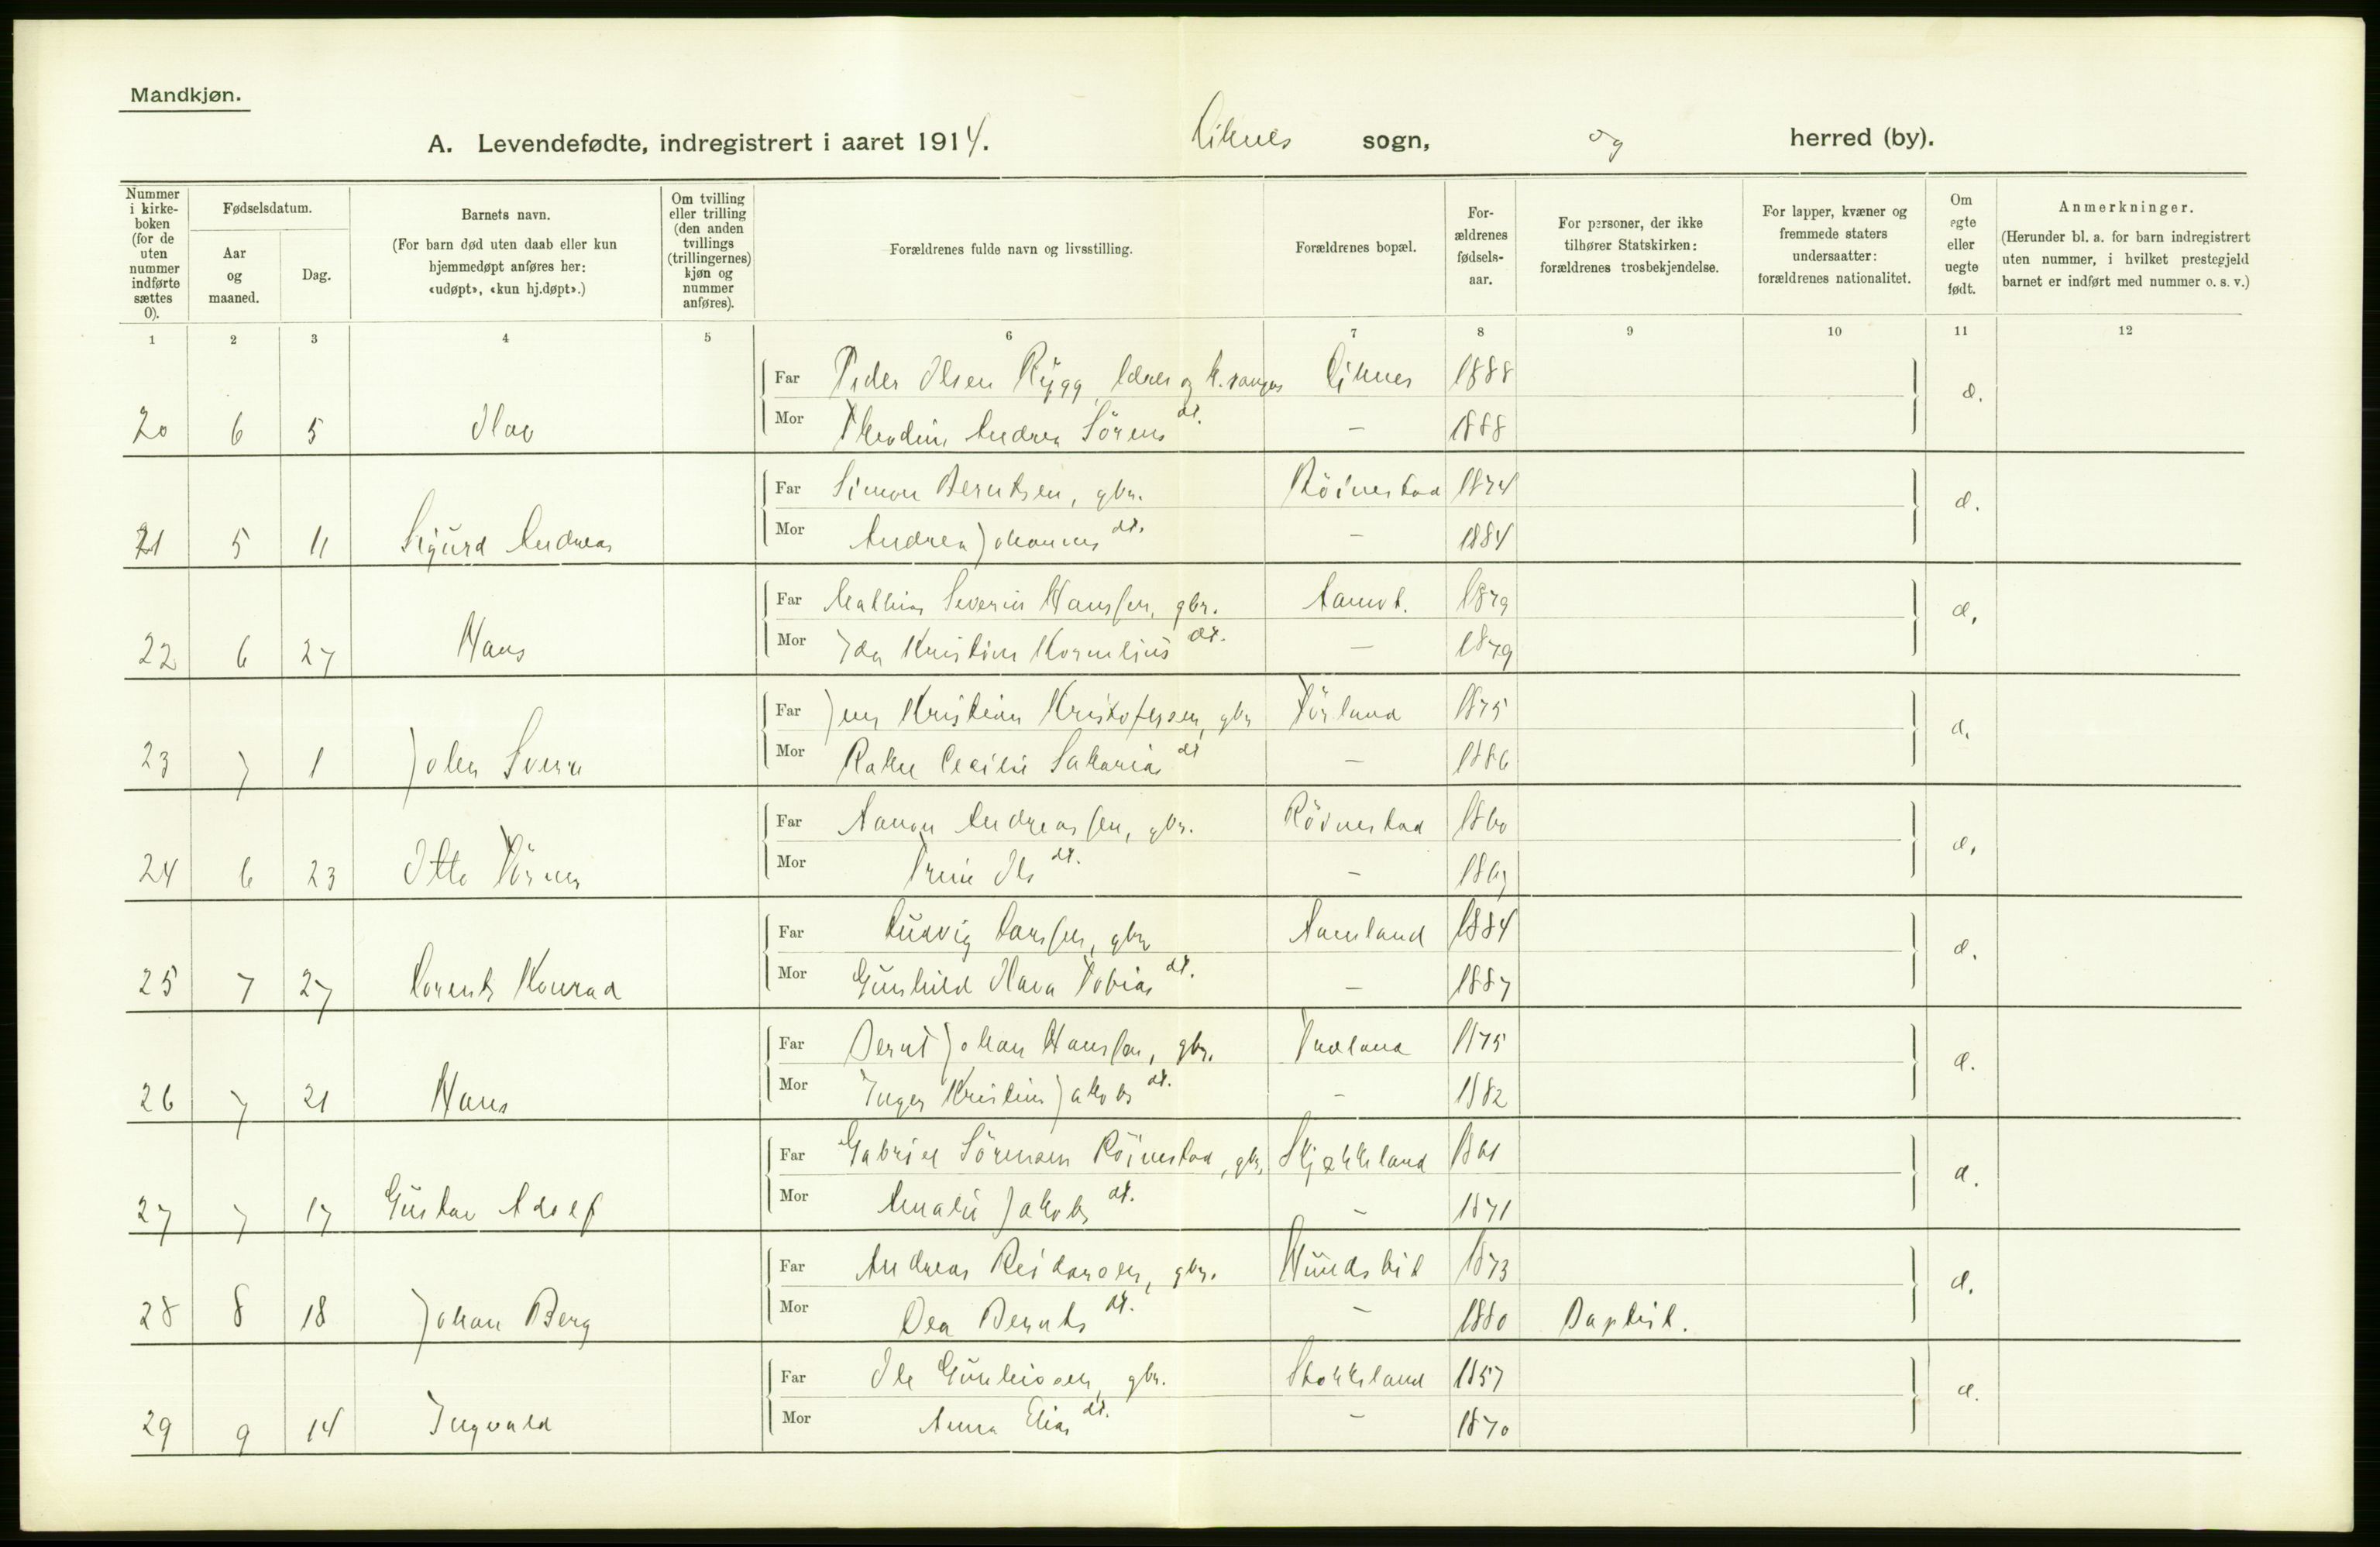 Mandkjøn.
A. Levendefødte, indregistrert i aaret 1914. Liknes sogn, og herred (by).
Nummer i kirke-boken (for de uten nummer indførte sættes 0).
Fødselsdatum.
Aar og maaned.
Dag.
Barnets navn.
(For barn død uten daab eller kun hjemmedøpt anføres her: «udøpt», «kun hj.døpt».)
Om tvilling eller trilling (den anden tvillings (trillingernes) kjøn og nummer anføres).
Forældrenes fulde navn og livsstilling.
Forældrenes bopæl.
For-ældrenes fødsels-aar.
For personer, der ikke tilhører Statskirken: forældrenes trosbekjendelse.
For lapper, kvæner og fremmede staters undersaatter: forældrenes nationalitet.
Om egte eller uegte født.
Anmerkninger.
(Herunder bl. a. for barn indregistrert uten nummer, i hvilket prestegjeld barnet er indført med nummer o. s. v.)
1 2 3 4 5 6 7 8 9 10 11 12
Far Peder Olsen Rygg, lærer og k.sanger Liknes 1888 e.
20 6 5 Olav Mor Theodine Andrea Sörens dt. – 1888
Far Simon Berntsen, gbr. Röinestad 1874 e.
21 5 11 Sigurd Andreas Mor Andrea Johannes dt. – 1884
Far Mathias Severin Hanssen, gbr. Aamot. 1879 e.
22 6 27 Hans Mor Ida Kristine Kornelius dt. – 1879
Far Jens Kristian Kristofersen, gbr 1875 e.
23 7 1 John Sverre Mor Rakel Cecilie Sakarias dt – 1886
Far Aanon Andreassen, gbr. Röinestad 1860 e.
24 6 23 Otto Mor Trine Ols dt. – 1869
Far Ludvig Larssen, gbr Aamland 1884 e.
25 7 27 Lorents Konrad Mor Gunhild Olava Tobias dt. – 1887
Far Bernt Johan Hanssen, gbr. 1875 e.
26 7 21 Hans Mor Inger Kristine Jakobs dt. – 1882
Far Gabriel Sörensen Röinestad, gbr, Skjekkeland 1861 e.
27 7 17 Gustav Adolf Mor Amalie Jakobs dt. – 1871
Far Andreas Reidarsen, gbr. 1873 e.
28 8 18 Johan Berg Mor Dea Bernts dt. – 1880 Baptist.
Far Ole Gunleiksen, gbr. Stokkeland 1857 e.
29 9 14 Ingvald Mor Anna Elias dt. – 1870